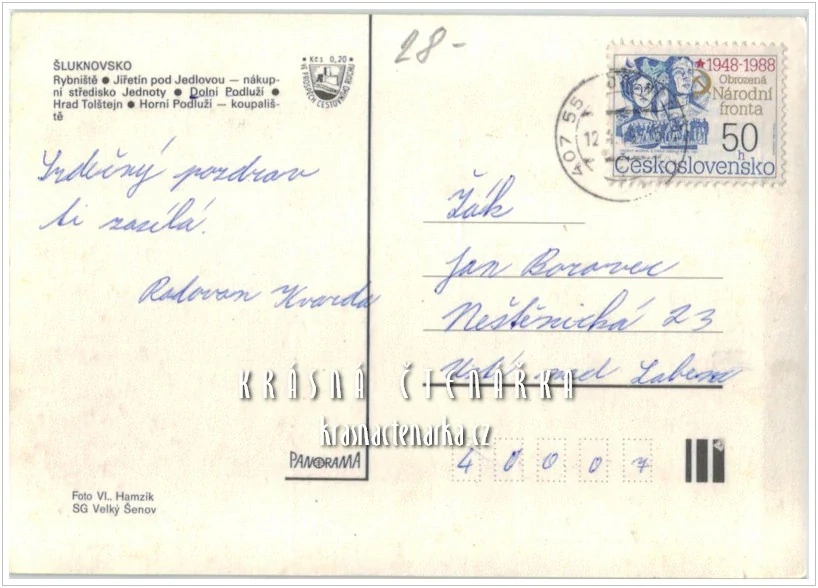 ŠLUKNOVSKO
Rybniště ● Jiřetín pod Jedlovou — nákup-
ní středisko Jednoty ● Dolní Podluží ●
Hrad Tolštejn ● Horní Podluží — koupališ-
tě
Kčs 0,20
VE PROSPĚCH CESTOVNÍHO RUCHU
28-
1948-1988
Obrozená
Národní
fronta
50
h
Československo
407 55
12
Srdečný pozdrav
ti zasílá.
Radovan Kvarda
Žák
Jan Borovec
Neštěnická 23
Ústí nad Labem
40007
KRÁSNÁ ČTENÁŘKA
krasnactenarka.cz
PANORAMA
Foto Vl. Hamzík
SG Velký Šenov